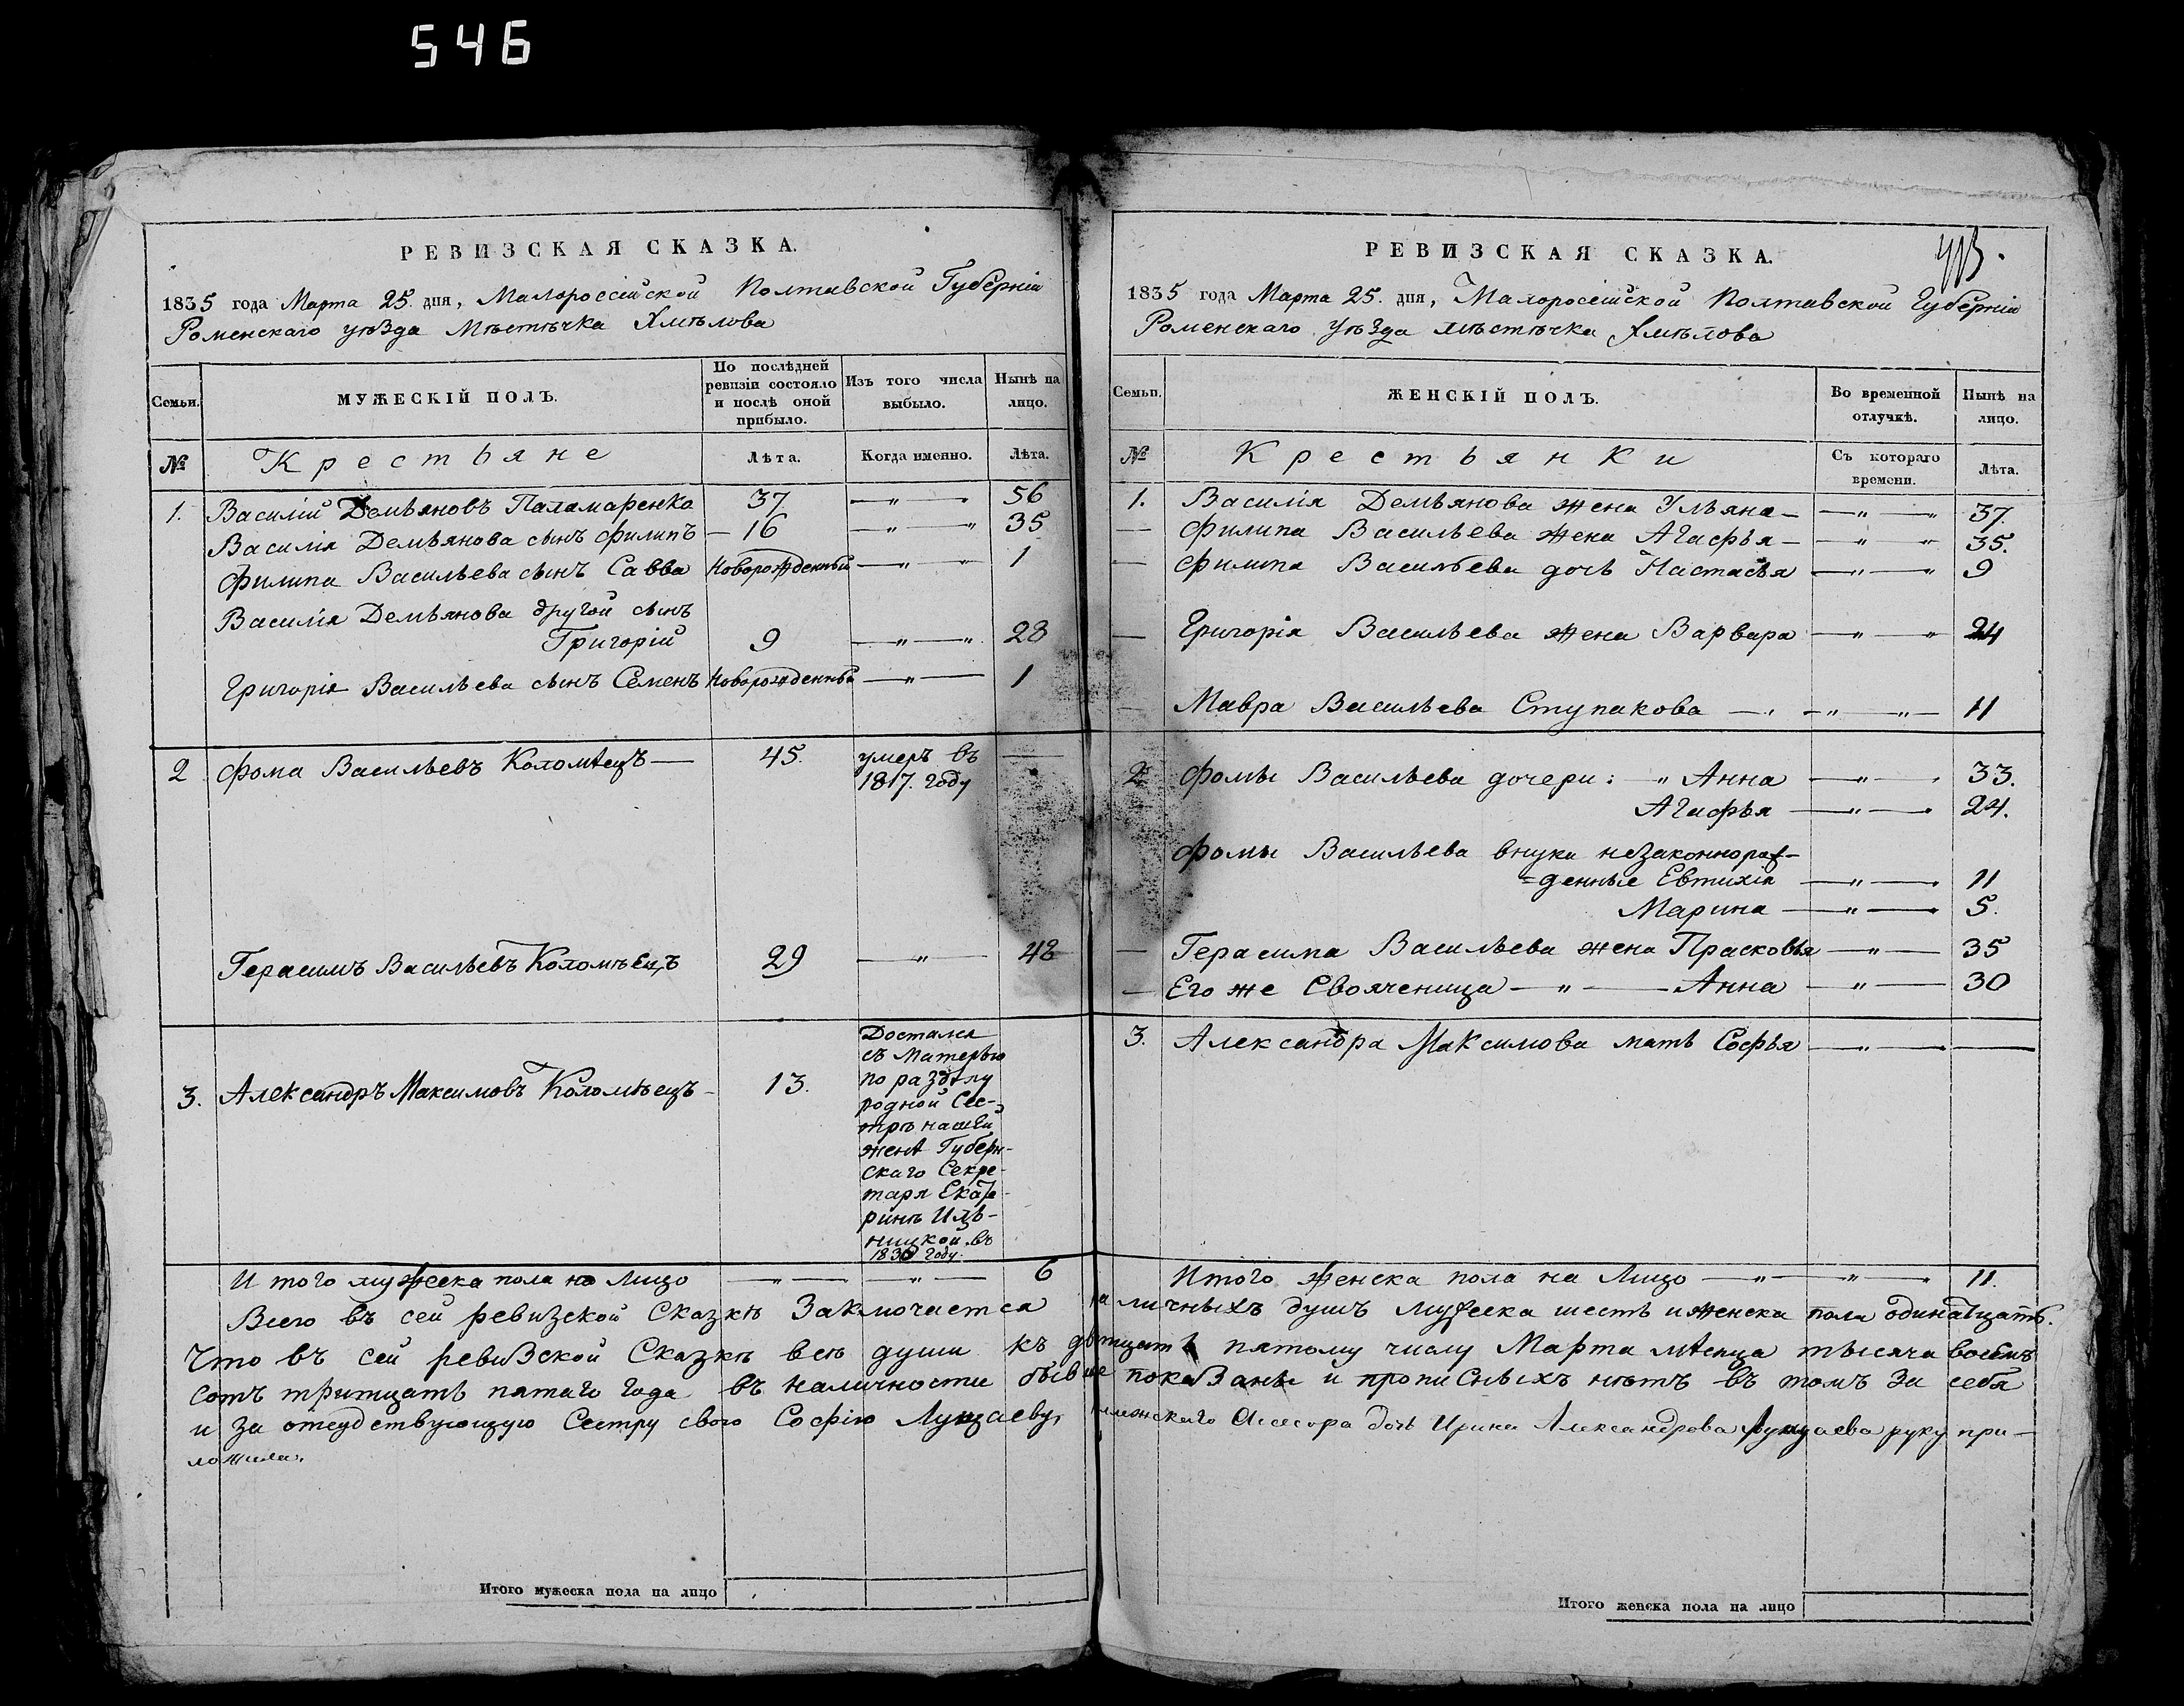 546
РЕВИЗСКАЯ СКАЗКА.
1835 года Марта 25. дня, Малороссійской Полтавской Губерніи
Роменскаго уѣзда Мѣстѣчка Хмѣлова
Семьи.
МУЖЕСКІЙ ПОЛЪ.
По послѣдней ревизіи состояло и послѣ оной прибыло.
Изъ того числа выбыло.
Нынѣ на лицо.
№ Крестьяне Лѣта. Когда именно. Лѣта.
1. Василій Демьяновъ Паламаренко 37 — „ — 56
Василія Демьянова сынъ Филипъ — 16 — „ — „ 35
Филипа Васильева сынъ Савва Новорожденный — „ — „ 1
Василія Демьянова другой сынъ
Григорій 9 — „ — „ 28
Григорія Васильева сынъ Семенъ Новорожденный — „ — 1
2 Фома Васильевъ Коломѣецъ — 45. умеръ въ —
1817. году
Герасимъ Васильевъ Коломѣецъ 29 — „ — 48
3. Александръ Максимовъ Коломѣецъ - 13.
Достался
съ матерью
по раздѣлу
родной Сес-
трѣ нашей
женѣ Губерн-
скаго Секре-
таря Екате-
ринѣ Иль-
ницкой въ
1830 году.
И того мужеска пола на Лицо — „ — — „ — 6
РЕВИЗСКАЯ СКАЗКА.
1835 года Марта 25. дня, Малоросеійской Полтавской Губерніи
Роменскаго уѣзда мѣстѣчка Хмѣлова
Семьи.
ЖЕНСКІЙ ПОЛЪ.
Во временной отлучкѣ.
Нынѣ на лицо.
№ Крестьянки Съ котораго времени. Лѣта.
1. Василія Демьянова жена Ульяна — — „ — „ 37.
— Филипа Васильева жена Агафья — — „ — „ 35.
— Филипа Васильева дочь Настасья — „ — „ 9
— Григорія Васильева жена Варвара — „ — „ 24
— Мавра Васильева Ступакова — „ — „ — „ — 11
2 Фомы Васильева дочери: „ Анна — „ — „ 33.
Агафья — „ — „ 24.
Фомы Васильева внуки незаконнорож-
=денные Евтихія — „ — 11
Марина — „ — 5.
— Герасима Васильева жена Прасковья — „ — 35
— Его же Своячeница — „ — Анна — „ — 30
3. Александра Максимова мать Софья — „ — —
Итого женска пола на Лицо — „ — „ — „ 11.
Всего въ сей ревизской Сказкѣ Заключается наличныхъ душъ мужеска шесть и женска пола одинатцать.
Что въ сей ревизской Сказкѣ всѣ души къ двѣтцать пятому числу Марта мѣсяца тысяча восемь
сотъ тритцать пятаго года въ наличности бывше показаны и прописныхъ нѣтъ въ томъ За себя
и за отсудствующую Сестру свою Софію Лукцаеву, Асессора дочь Ирина Александрова руку при-
ложила.
Итого мужеска пола на лицо
Итого женска пола на лицо